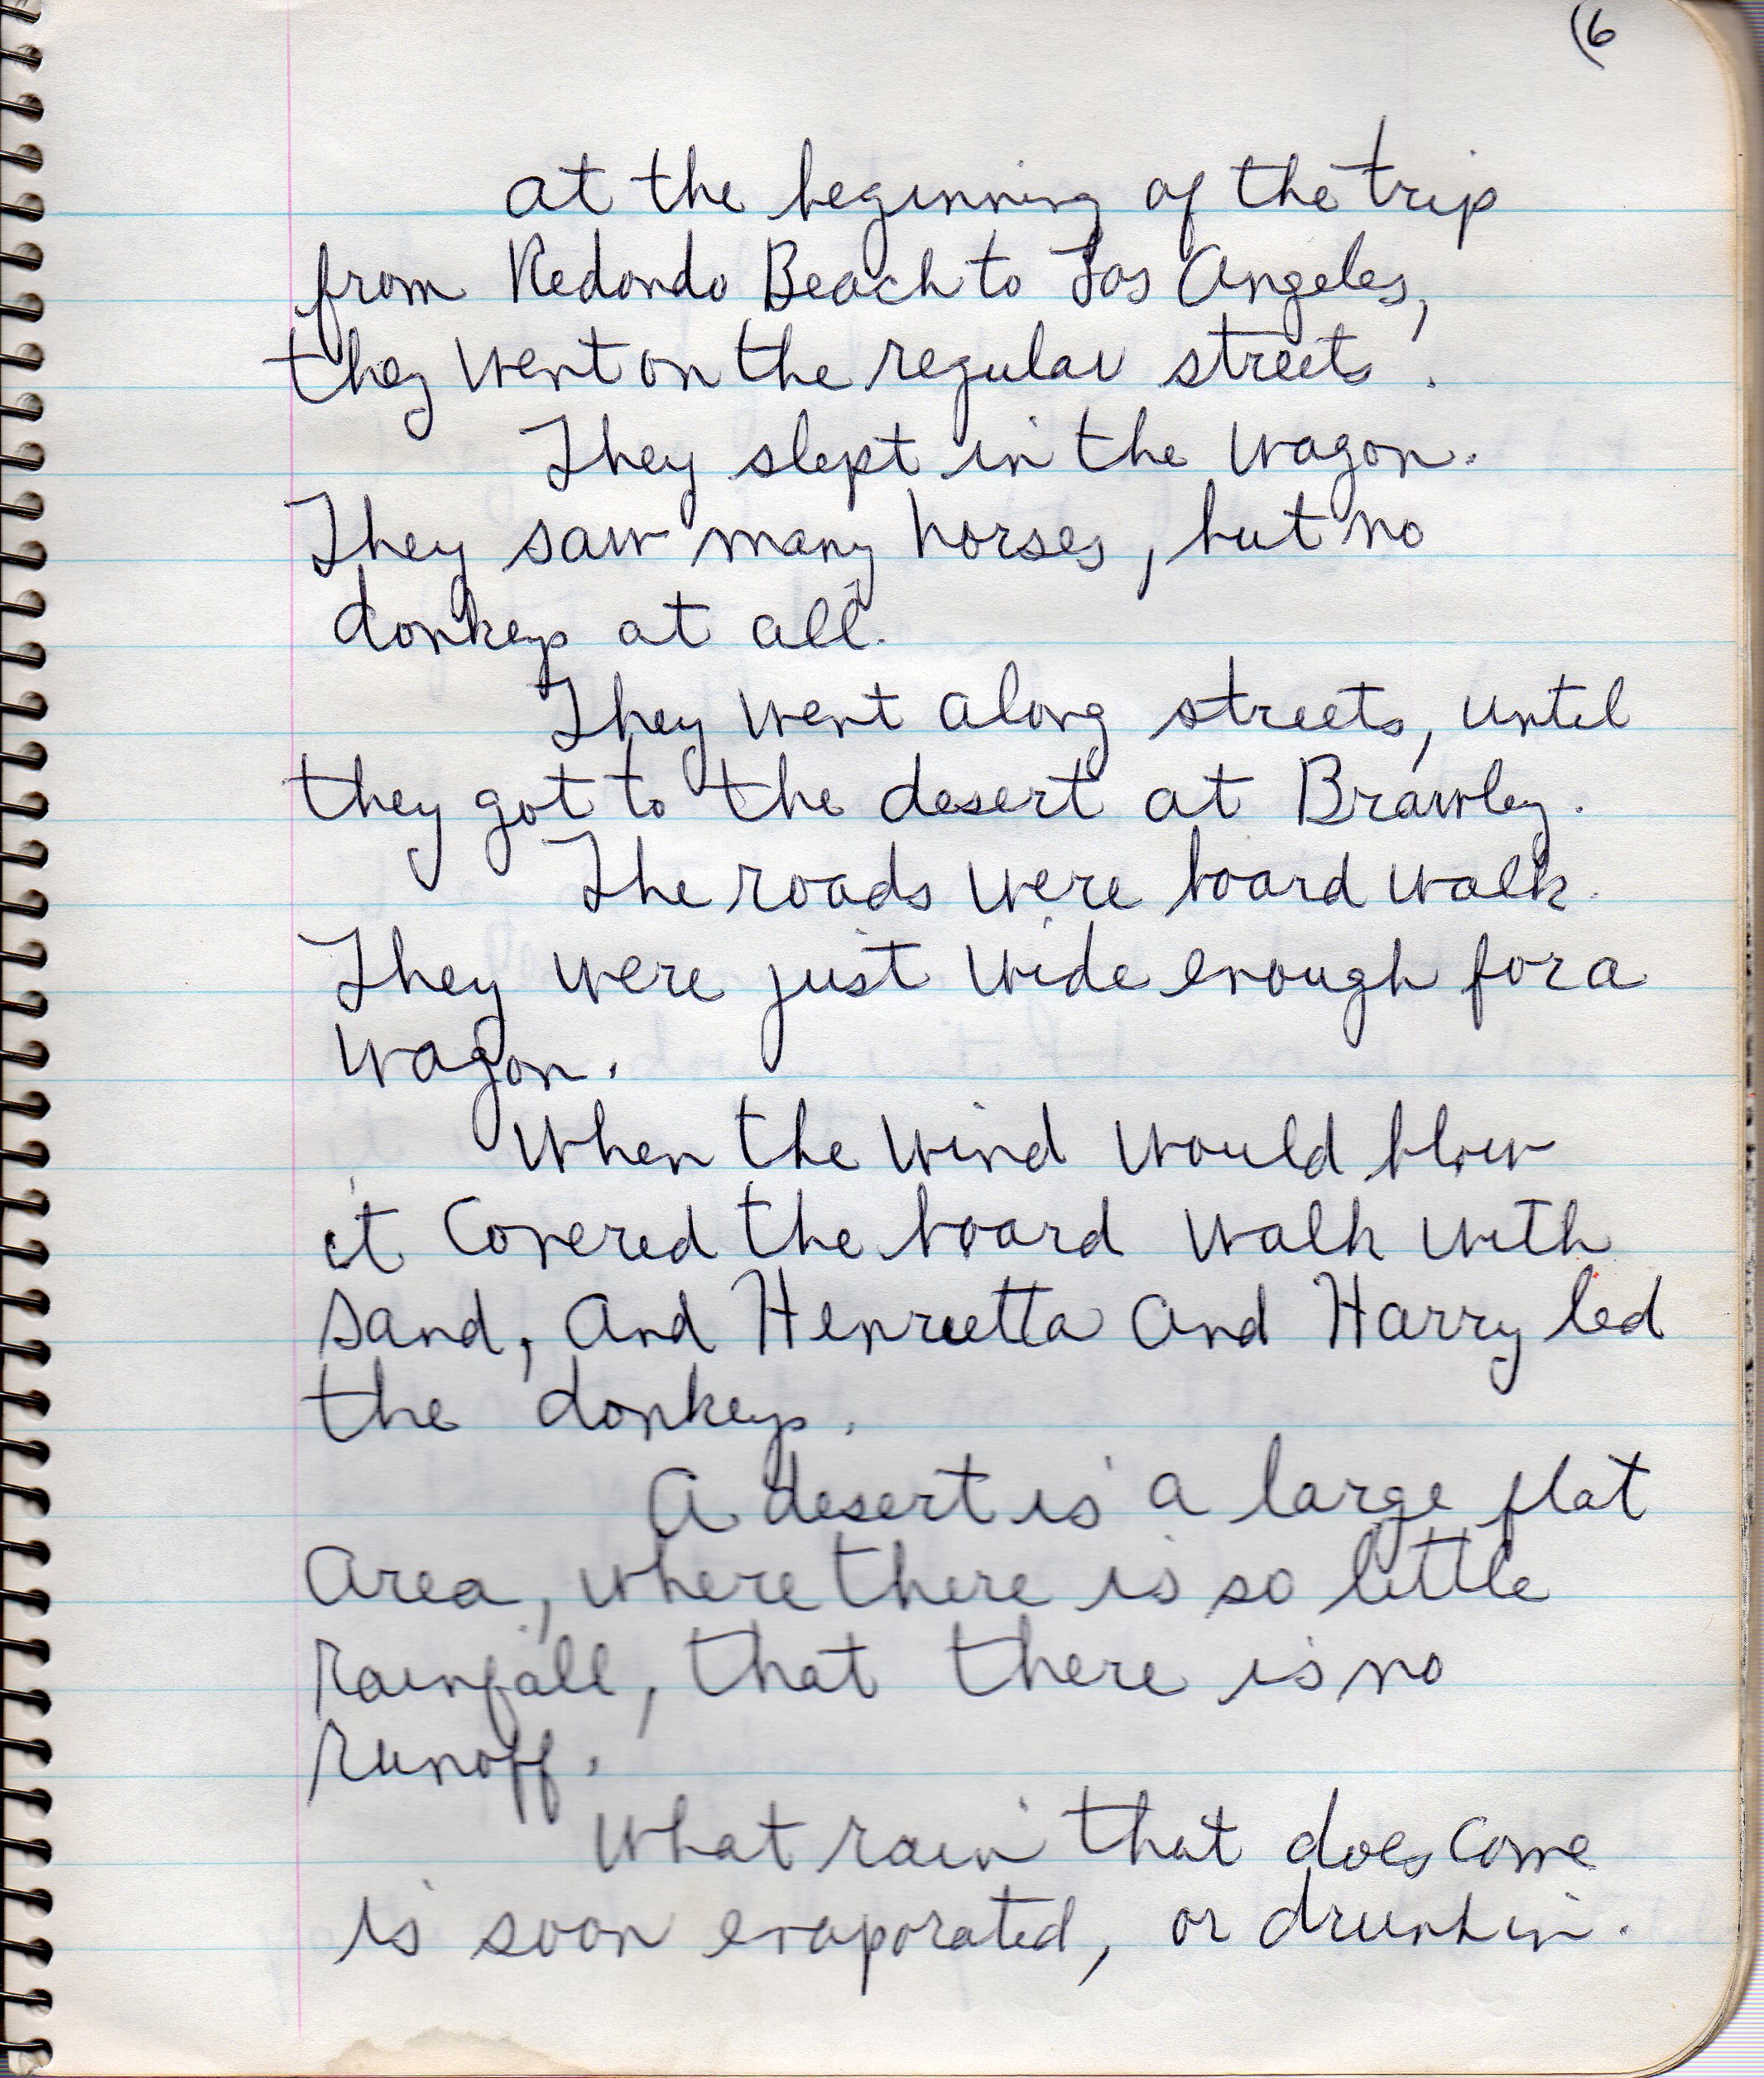 (6
at the beginning of the trip
from Redondo Beach to Los Angeles,
they went on the regular streets.
They slept in the wagon.
They saw many horses, but no
donkeys at all.
They went along streets, until
they got to the desert at Brawley.
The roads were board walk.
They were just wide enough for a
wagon.
When the wind would blow
it covered the board walk with
sand, and Henrietta and Harry led
the donkeys.
A desert is a large flat
area, where there is so little
rainfall, that there is no
runoff.
What rain that does come
is soon evaporated, or drunk in.